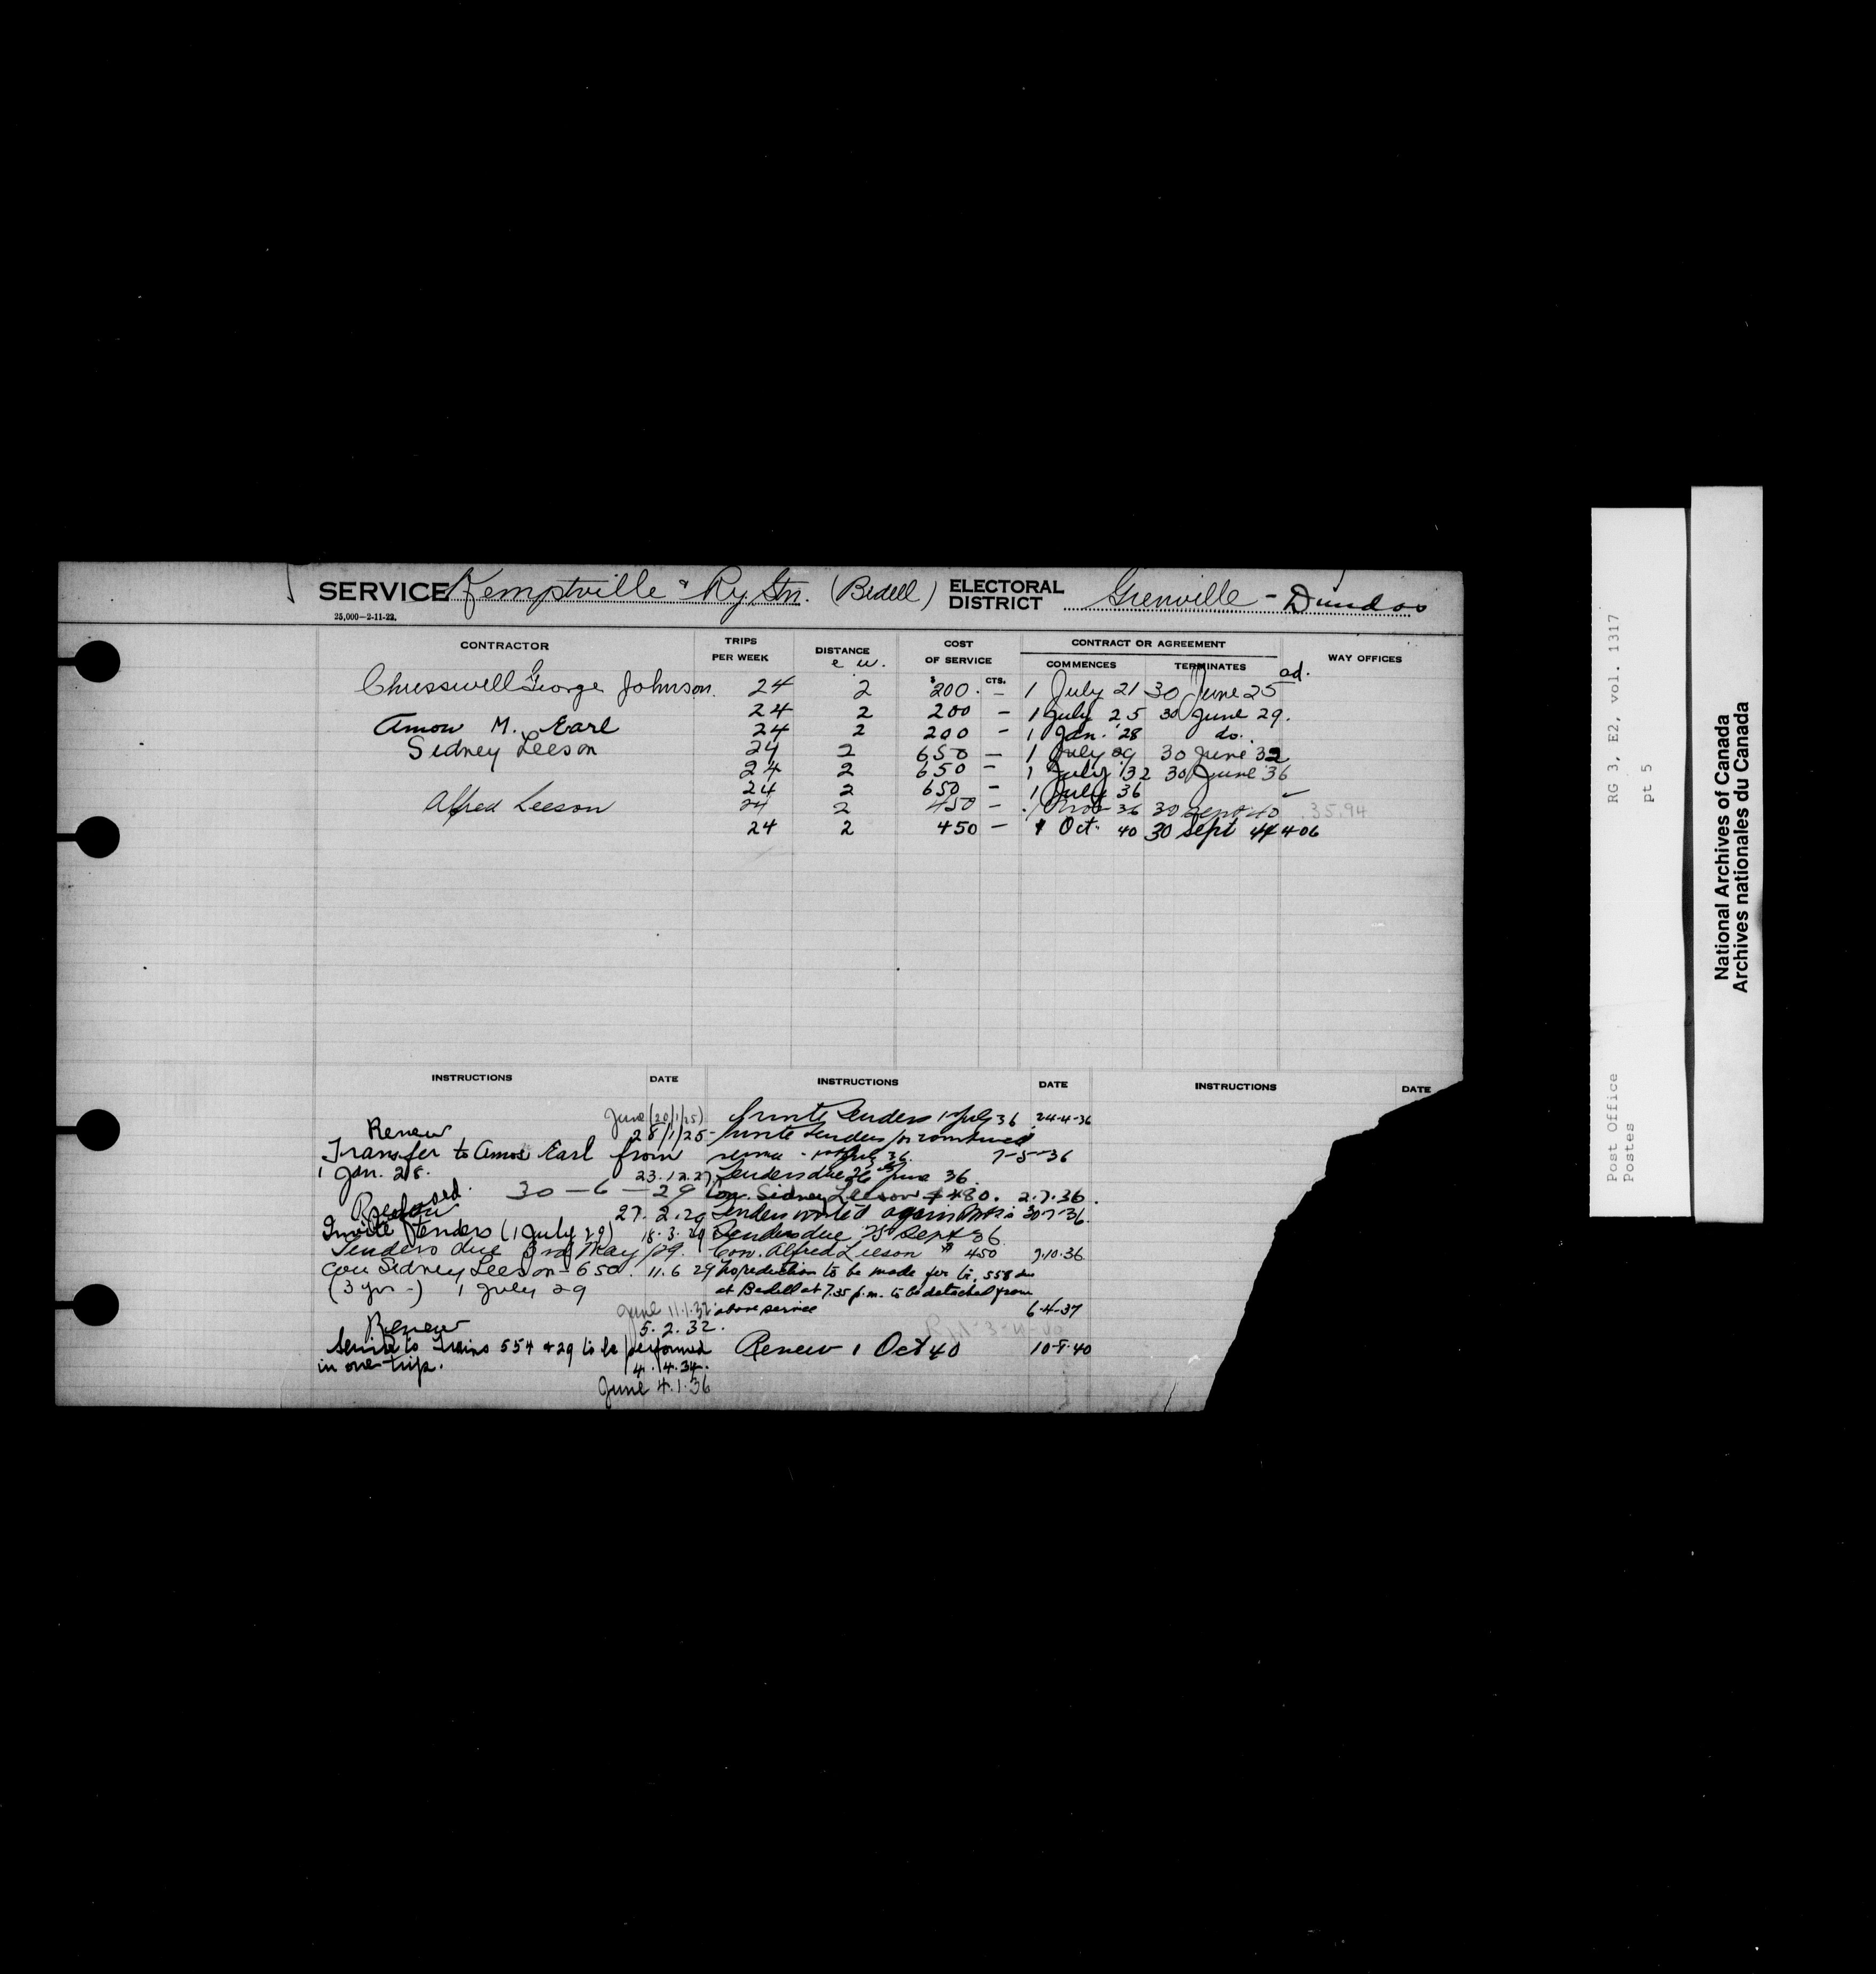 SERVICE Kemptville & Ry Stn. (Bedell) ELECTORAL DISTRICT Grenville - Dundas
25,000-2-11-22.
CONTRACTOR TRIPS PER WEEK DISTANCE COST OF SERVICE CONTRACT OR AGREEMENT WAY OFFICES
e w. $ CTS. COMMENCES TERMINATES
George Johnson. 24 2 200. - 1 July 21 30 June 25 ad.
24 2 200 - 1 July 25 30 June 29.
Amow M. Earl 24 2 200 - 1 Jan. '28 do.
Sidney Leeson 24 2 650 - 1 July 29 30 June 32
24 2 650 - 1 July '32 30 June 36
24 2 650 - 1 July 36
Alfred Leeson 24 2 450 - 1 Nov 36 30 Sept 40 35.94
24 2 450 - 1 Oct. 40 30 Sept 44 406
INSTRUCTIONS DATE INSTRUCTIONS DATE INSTRUCTIONS DATE
June (20/1/25)
Renew 28/1/25-
Transfer to Amos Earl from
1 Jan. 28. 23.12.27
30-6-29
27.2.29
Invite Tenders (1 July 29) 18.3.29
Tenders due 3rd May /29.
Con Sidney Leeson - 650. 11.6 29
(3 yrs-) 1 July 29
June 11.1.32
Renew 5.2.32.
Service to Trains 554 & 29 to be performed
in one trip. 4.4.34.
June 4.1.36
Invite Tenders 1 July 36 24-4-36
Invite Tenders
7-5-36
Tenders due 26 June 36.
Con. Sidney Leeson $480. 2.7.36.
Tenders invited again 30-7-36.
Tenders due 25 Sept 36.
Con. Alfred Leeson $450 7.10.36
No reduction to be made for tr. 558 due
at Bedell at 7.35 p.m. to be detached from
above service 6-4-37
Renew 1 Oct 40 10-8-40
Post Office RG 3, E2, vol. 1317
Postes pt 5
National Archives of Canada
Archives nationales du Canada